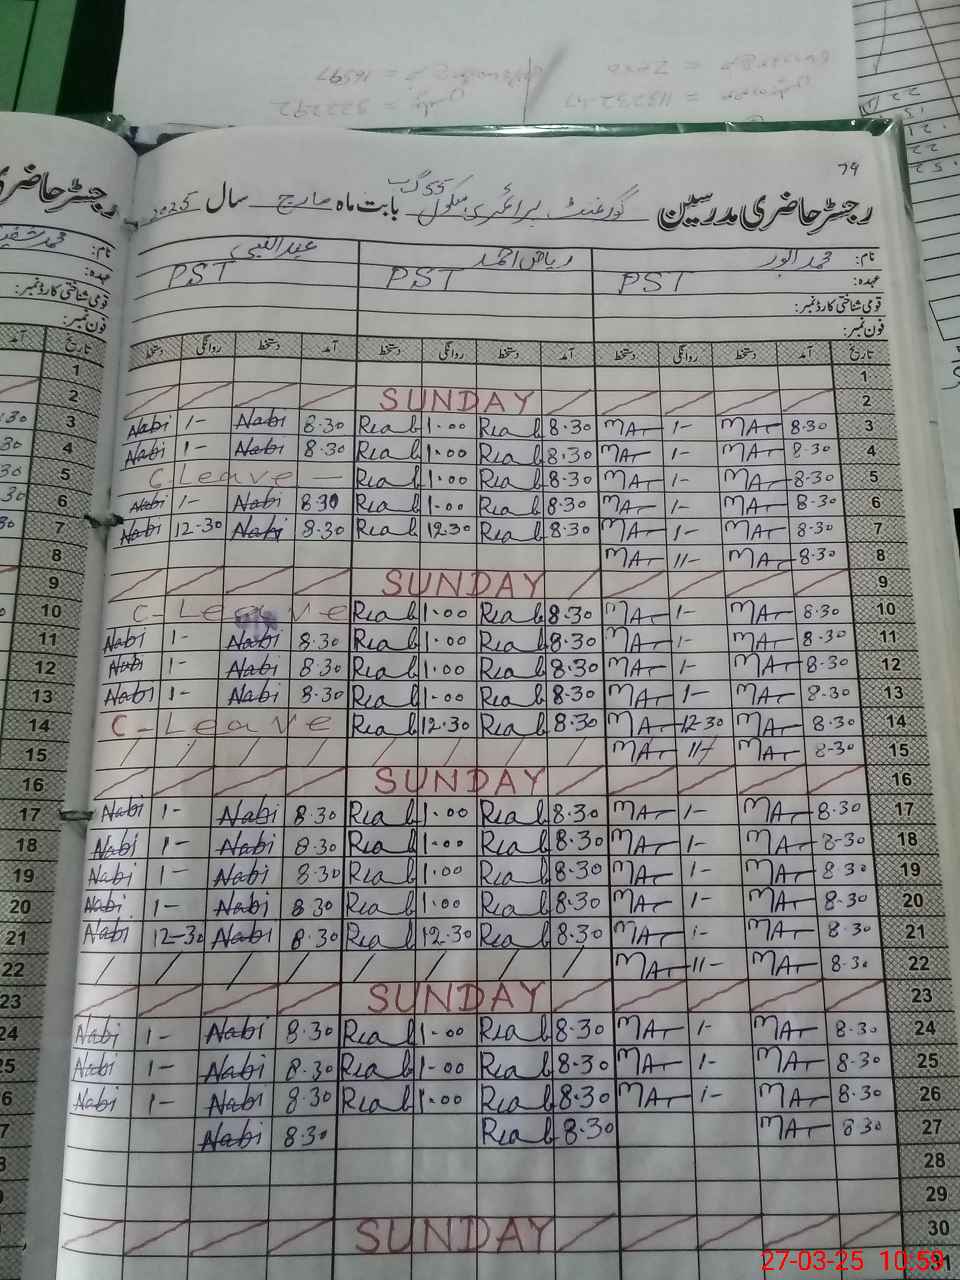 79
رجسٹر حاضری مدرسین گورنمنٹ پرائمری سکول 55 گ ب بابت ماہ مارچ سال 2025
نام: محمد انور ریاض احمد عبدالنبی
عہدہ: PST PST PST
قومی شناختی کارڈ نمبر:
فون نمبر:
تاریخ آمد دستخط روانگی دستخط آمد دستخط روانگی دستخط آمد دستخط روانگی دستخط
1
SUNDAY 2
Nabi 1- Nabi 8.30 Riab 1.00 Riab 8.30 MAr 1- MAr 8.30 3
Nabi 1- Nabi 8.30 Riab 1.00 Riab 8.30 MAr 1- MAr 8.30 4
C.Leave - Riab 1.00 Riab 8.30 MAr 1- MAr 8.30 5
Nabi 1- Nabi 8.30 Riab 1.00 Riab 8.30 MAr 1- MAr 8.30 6
Nabi 12-30 Nabi 8.30 Riab 12.30 Riab 8.30 MAr 1- MAr 8.30 7
MAr 11- MAr 8.30 8
SUNDAY 9
C-Leave Riab 1.00 Riab 8.30 MAr 1- MAr 8.30 10
Nabi 1- Nabi 8.30 Riab 1.00 Riab 8.30 MAr 1- MAr 8.30 11
Nabi 1- Nabi 8.30 Riab 1.00 Riab 8.30 MAr 1- MAr 8.30 12
Nabi 1- Nabi 8.30 Riab 1.00 Riab 8.30 MAr 1- MAr 8.30 13
C-Leave Riab 12.30 Riab 8.30 MAr 12-30 MAr 8.30 14
MAr 11- MAr 8.30 15
SUNDAY 16
Nabi 1- Nabi 8.30 Riab 1.00 Riab 8.30 MAr 1- MAr 8.30 17
Nabi 1- Nabi 8.30 Riab 1.00 Riab 8.30 MAr 1- MAr 8.30 18
Nabi 1- Nabi 8.30 Riab 1.00 Riab 8.30 MAr 1- MAr 8.30 19
Nabi 1- Nabi 8.30 Riab 1.00 Riab 8.30 MAr 1- MAr 8.30 20
Nabi 12-30 Nabi 8.30 Riab 12.30 Riab 8.30 MAr 1- MAr 8.30 21
MAr 11- MAr 8.30 22
SUNDAY 23
Nabi 1- Nabi 8.30 Riab 1.00 Riab 8.30 MAr 1- MAr 8.30 24
Nabi 1- Nabi 8.30 Riab 1.00 Riab 8.30 MAr 1- MAr 8.30 25
Nabi 1- Nabi 8.30 Riab 1.00 Riab 8.30 MAr 1- MAr 8.30 26
Nabi 8.30 Riab 8.30 MAr 8.30 27
28
29
SUNDAY 30
31
27-03-25 10:59